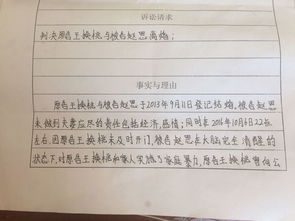 诉讼请求
判决原告王换桃与被告赵思离婚；
事实与理由
原告王换桃与被告赵思于2013年9月11日登记结婚，被告赵思
未做到夫妻应尽的责任包括经济，感情；同时在2016年10月6日22点
左右，因原告王换桃未及时开门，被告赵思在大脑完全清醒的
状态下，对原告王换桃和家人实施了家庭暴力，原告王换桃曾向公